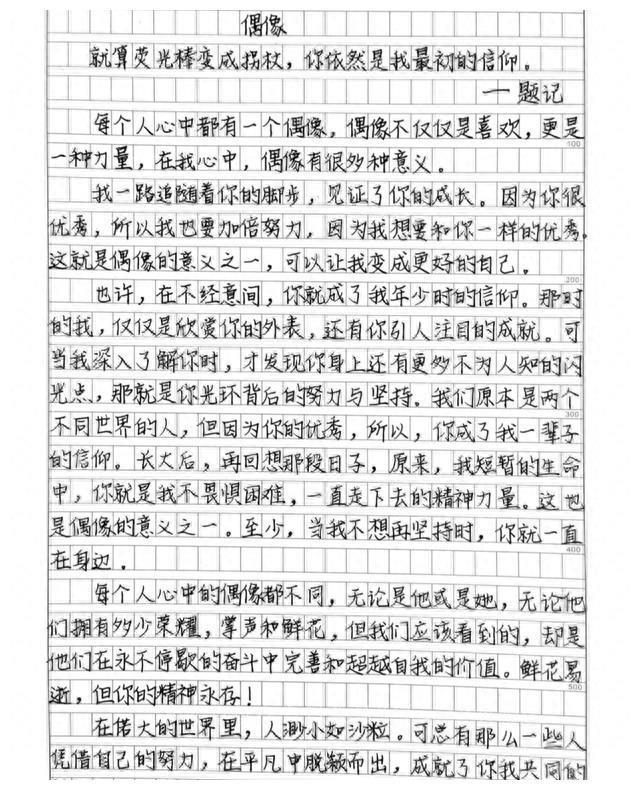 偶像
就算荧光棒变成拐杖，你依然是我最初的信仰。
——题记
每个人心中都有一个偶像，偶像不仅仅是喜欢，更是
100
一种力量，在我心中，偶像有很多种意义。
我一路追随着你的脚步，见证了你的成长。因为你很
优秀，所以我也要加倍努力，因为我想要和你一样的优秀。
这就是偶像的意义之一，可以让我变成更好的自己。
200
也许，在不经意间，你就成了我年少时的信仰。那时
的我，仅仅是欣赏你的外表，还有你引人注目的成就。可
当我深入了解你时，才发现你身上还有更多不为人知的闪
光点，那就是你光环背后的努力与坚持。我们原本是两个
300
不同世界的人，但因为你的优秀，所以，你成了我一辈子
的信仰。长大后，再回想那段日子，原来，我短暂的生命
中，你就是我不畏惧困难，一直走下去的精神力量。这也
是偶像的意义之一。至少，当我不想再坚持时，你就一直
400
在身边。
每个人心中的偶像都不同，无论是他或是她，无论他
们拥有多少荣耀，掌声和鲜花，但我们应该看到的，却是
他们在永不停歇的奋斗中完善和超越自我的价值。鲜花易
500
逝，但你的精神永存！
在偌大的世界里，人渺小如沙粒。可总有那么一些人
凭借自己的努力，在平凡中脱颖而出，成就了你我共同的